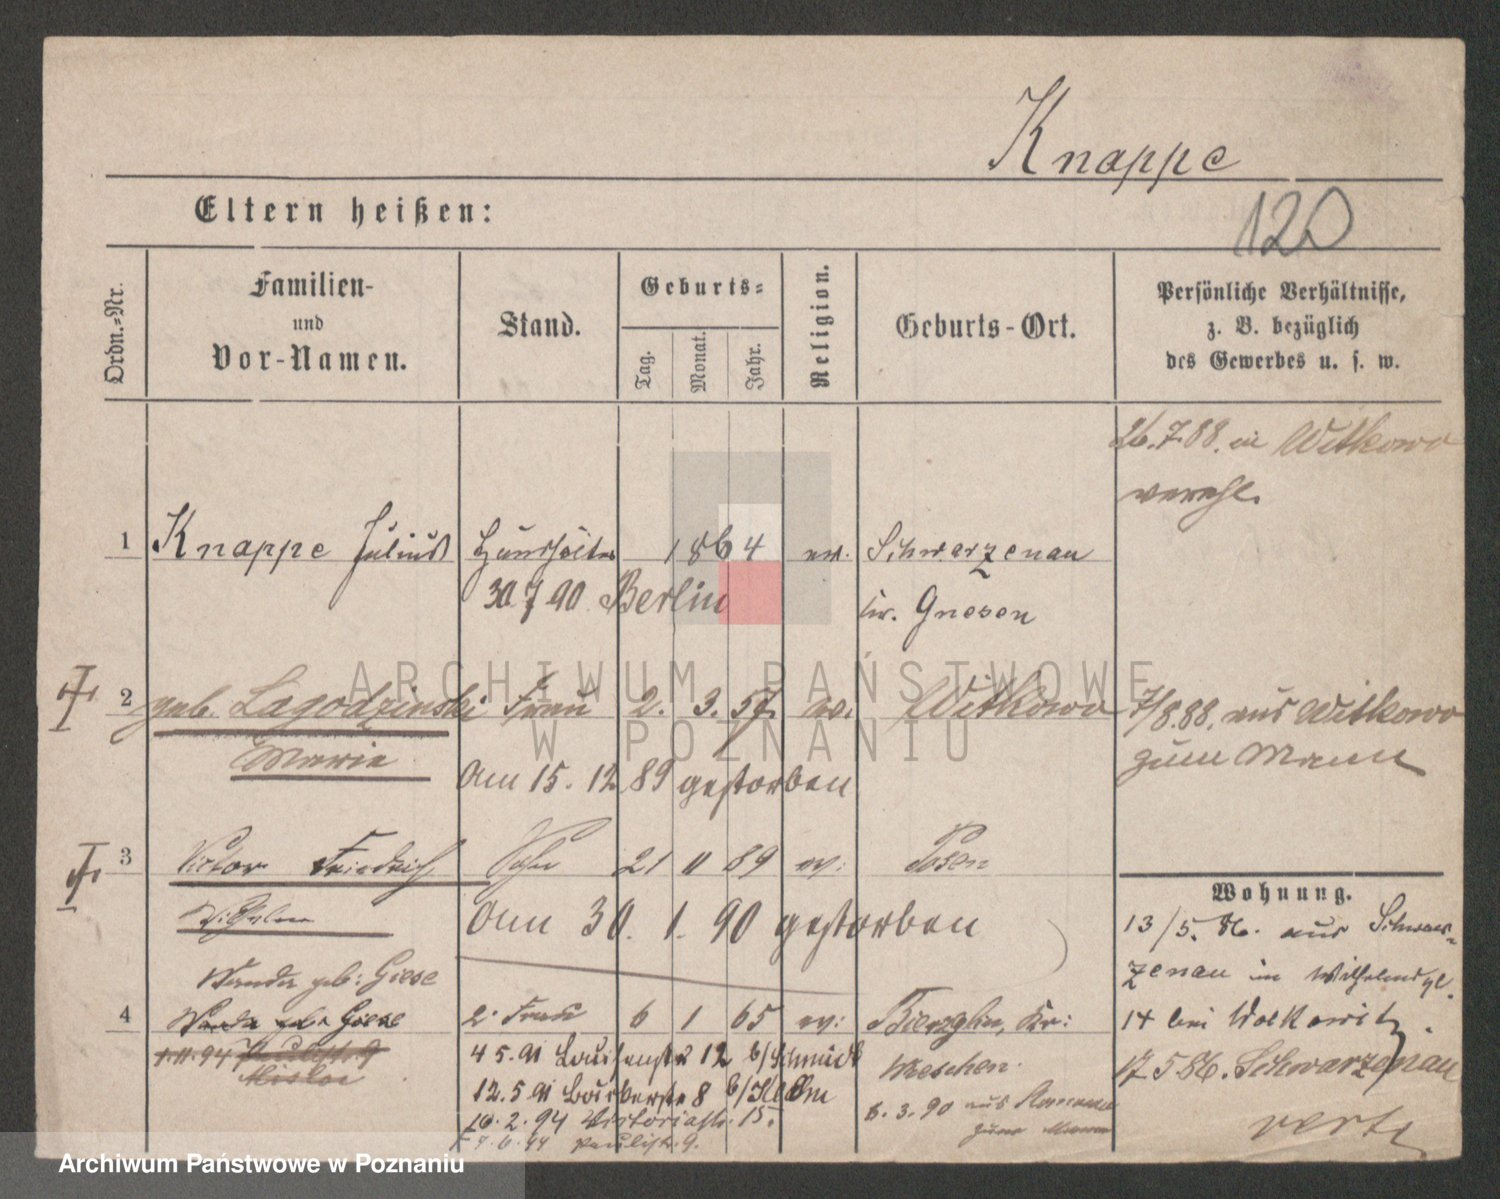 Knappe
Eltern heißen:
120
Ordn.=Nr.
Familien-
und
Vor-Namen.
Stand.
Geburts=
Tag.
Monat.
Jahr.
Religion.
Geburts-Ort.
Persönliche Verhältnisse,
z. B. bezüglich
des Gewerbes u. s. w.
26.7.88. in Witkowo
verehl.
1 Knappe Julius 1864 ev. Schwarzenau
30 7 90 Berlin Kr. Gnesen
2 geb. Lagodzinski Frau 2. 3. 57. ev. Witkowo 7/8.88. aus Witkowo
Marie zum Mann
Am 15. 12 89 gestorben
3 Victor Friedrich Sohn 21 11 89 ev: Posen
Wilhelm
Am 30. 1. 90 gestorben
Wohnung.
13/5. 86. aus Schwar-
zenau in Wilhelmspl.
14 bei Wolkowitz.
17 5 86. Schwarzenau
vert.
Wanda geb: Giese
4 Wanda geb: Giese 2. Frau 6 1 65 ev: Kr:
Wreschen.
1.11.94 Paulistr. 9
4 5. 91 12 b/Schmidt
12. 5 91 8
10. 2. 94 Victoriastr. 15.
Paulistr. 9.
6. 3. 90 aus
zum Mann
ARCHIWUM PAŃSTWOWE
W POZNANIU
Archiwum Państwowe w Poznaniu